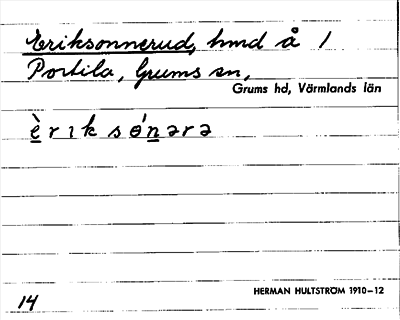 Eriksonnerud, hmd å 1
Portila, Grums sn,
Grums hd, Värmlands län
è r ı k s ɵ́ n ə r ə
HERMAN HULTSTRÖM 1910–12
14